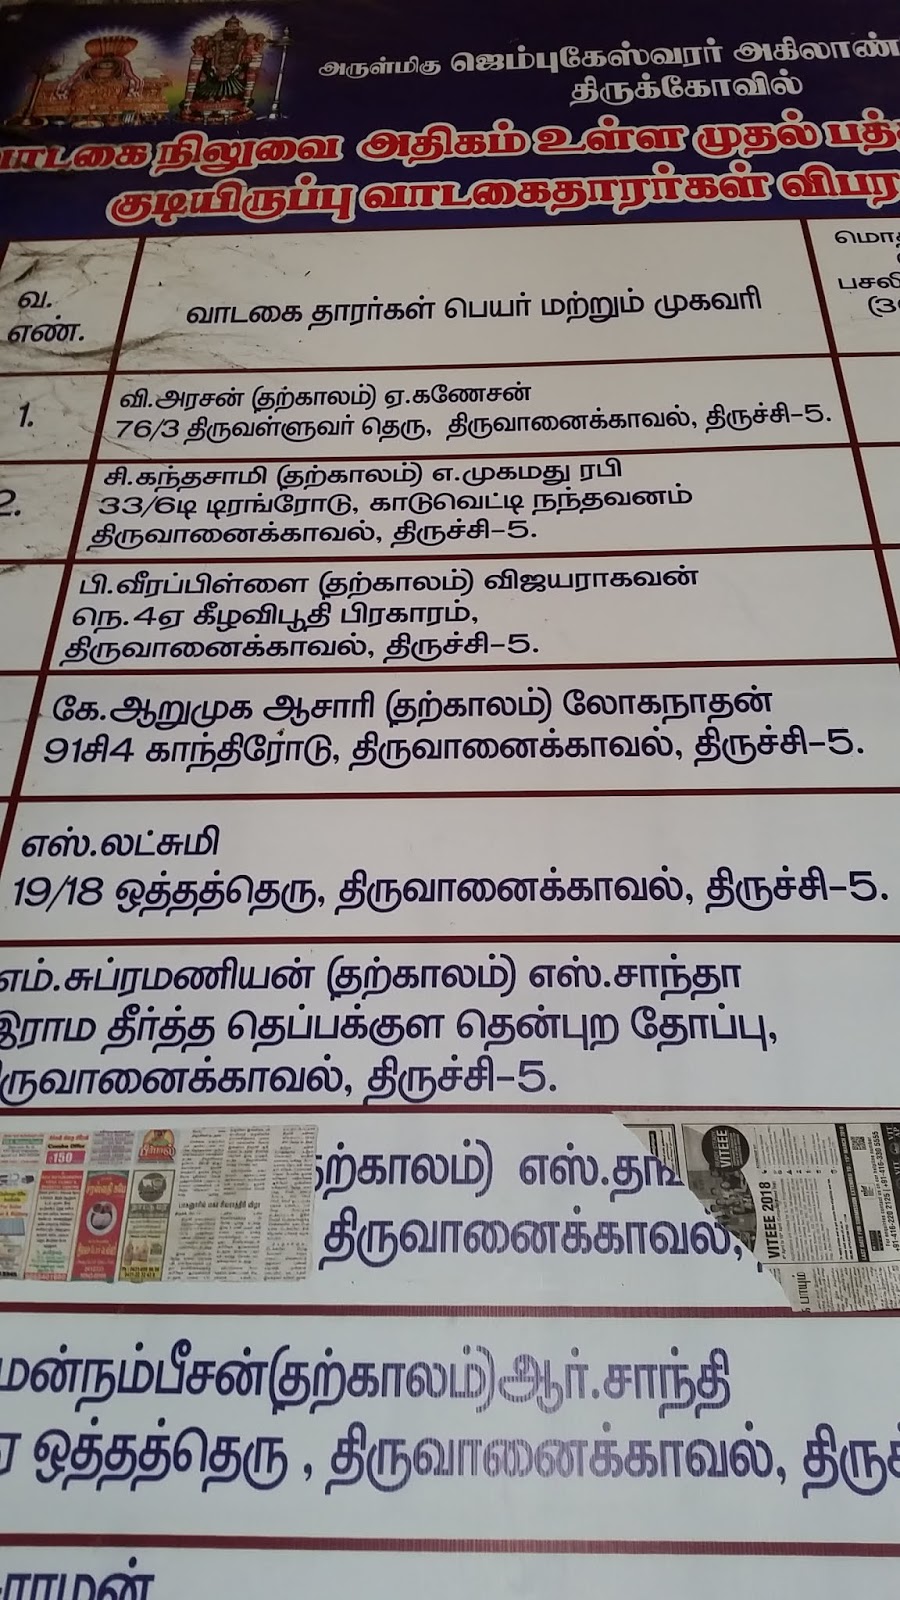 அருள்மிகு ஜெம்புகேஸ்வரர்
திருக்கோவில்
நிலுவை அதிகம் உள்ள முதல்
குடியிருப்பு வாடகைதாரர்கள்
வ.
எண்.
வாடகை தாரர்கள் பெயர் மற்றும் முகவரி
1.
வி.அரசன் (தற்காலம்) ஏ.கணேசன்
76/3 திருவள்ளுவர் தெரு, திருவானைக்காவல், திருச்சி-5.
2.
சி.கந்தசாமி (தற்காலம்) எ.முகமது ரபி
33/6டி டிரங்ரோடு, காடுவெட்டி நந்தவனம்
திருவானைக்காவல், திருச்சி-5.
பி.வீரப்பிள்ளை (தற்காலம்) விஜயராகவன்
நெ.4ஏ கீழவிபூதி பிரகாரம்,
திருவானைக்காவல், திருச்சி-5.
கே.ஆறுமுக ஆசாரி (தற்காலம்) லோகநாதன்
91சி4 காந்திரோடு, திருவானைக்காவல், திருச்சி-5.
எஸ்.லட்சுமி
19/18 ஒத்தத்தெரு, திருவானைக்காவல், திருச்சி-5.
எம்.சுப்ரமணியன் (தற்காலம்) எஸ்.சாந்தா
இராம தீர்த்த தெப்பக்குள தென்புற தோப்பு,
திருச்சி-5.
திருவானைக்காவல்,
VITEEE
VITEEE 2018
(தற்காலம்)ஆர்.சாந்தி
ஒத்தத்தெரு , திருவானைக்காவல்,